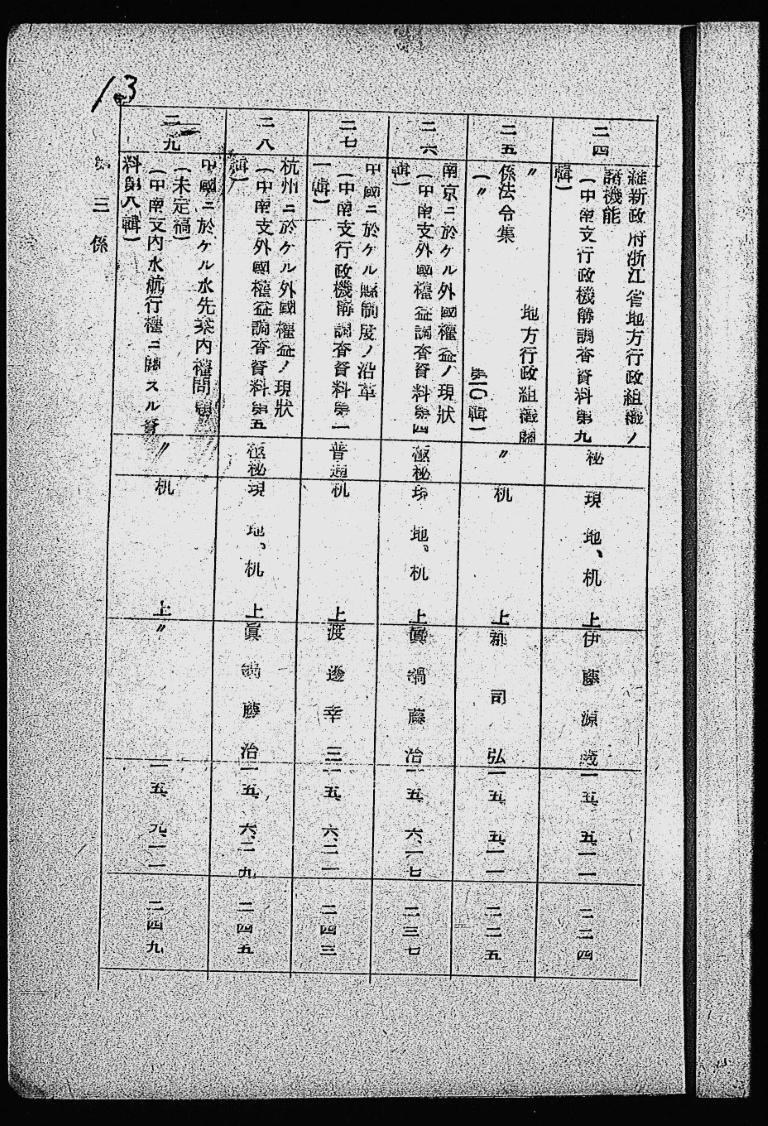 13
二四
維新政府浙江省地方行政組織ノ
諸機能
(中南支行政機構調査資料第九
輯)
秘
現地、机上
伊藤源蔵
一五、五、一一
二二四
二五
〃 地方行政組織關
係法令集
(〃 第一〇輯)
〃
机上
郡司弘
一五、五、一一
二二五
二六
南京ニ於ケル外國權益ノ現狀
(中南支外國權益調査資料第四
輯)
極秘
現地、机上
眞鍋藤治
一五、六、一七
二三七
二七
中國ニ於ケル縣制度ノ沿革
(中南支行政機構調査資料第一
一輯)
普通
机上
渡邊幸三
一五、六、二一
二四三
二八
杭州ニ於ケル外國權益ノ現狀
(中南支外國權益調査資料第五
輯)
極秘
現地、机上
眞鍋藤治
一五、六、二九
二四五
二九
中國ニ於ケル水先案内權問題
(未定稿)
(中南支内水航行權ニ關スル資
料第八輯)
〃
机上
〃
一五、九、一一
二四九
第三係